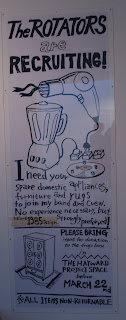 The ROTATORS
are
RECRUITING!
I need your
spare domestic appliances,
furniture and rugs
to join my band and crew.
No experience necessary, but
1985
through preferred
PLEASE BRING
input for donation
to the drop box
THE HAYWARD
PROJECT SPACE
before
MARCH 22nd
ALL ITEMS NON-RETURNABLE